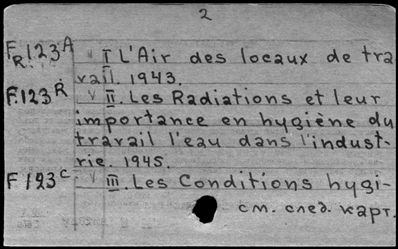 2
FR.123A I L'Air des locaux de tra
vail. 1943.
F.123R II. Les Radiations et leur
importance en hygiène du
travail l'eau dans l'indust-
rie. 1945.
F 123c III. Les Conditions hygi-
см. след. карт.